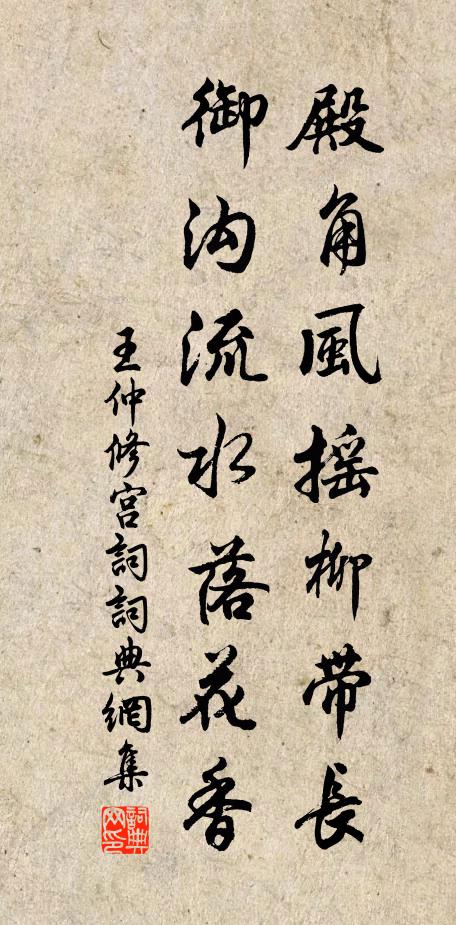 殿角風摇柳带長
御沟流水落花香
王仲修宫詞詞典網集
詞典网印